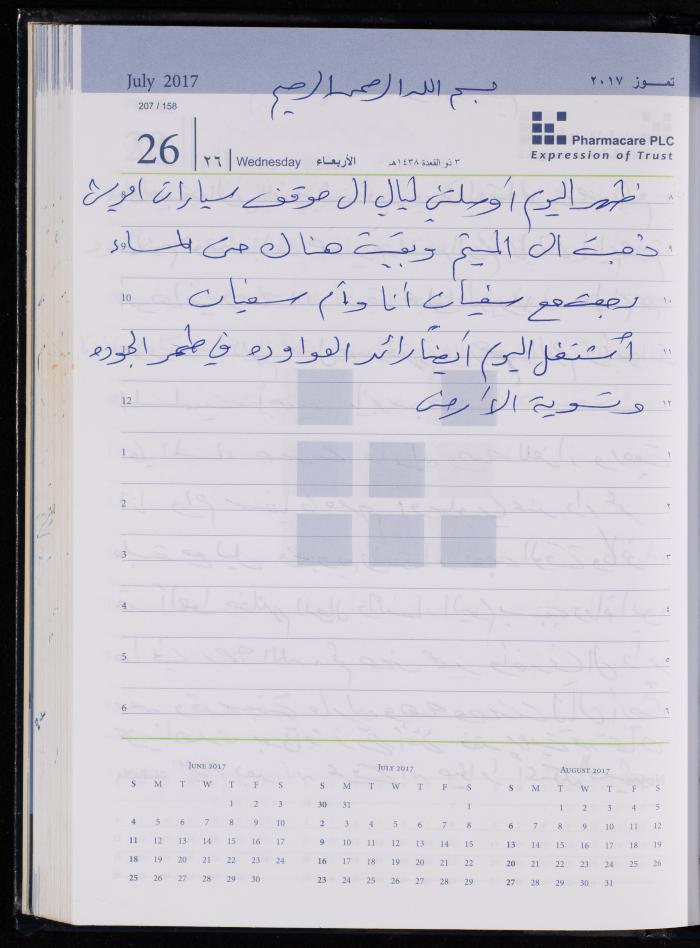 July 2017
بسم الله الرحمن الرحيم
تمـوز ٢٠١٧
207 / 158
26
٢٦
Wednesday
الأربعـاء
٣ ذو القعدة ١٤٣٨هـ
Pharmacare PLC
Expression of Trust
ظهر اليوم أوصلتني ليال ال موقف سيارات
ذهبت ال الميتم وبقيت هناك حتى المساء
رجعت مع سفيان أنا وأم سفيان
أشتغل اليوم أيضاً رائد العواوده في طمر الجوره
وتسوية الأرض
٨
٩
10 ١٠
١١
12 ١٢
1 ١
2 ٢
3 ٣
4 ٤
5 ٥
6 ٦
JUNE 2017
S M T W T F S
1 2 3
4 5 6 7 8 9 10
11 12 13 14 15 16 17
18 19 20 21 22 23 24
25 26 27 28 29 30
JULY 2017
S M T W T F S
30 31 1
2 3 4 5 6 7 8
9 10 11 12 13 14 15
16 17 18 19 20 21 22
23 24 25 26 27 28 29
AUGUST 2017
S M T W T F S
1 2 3 4 5
6 7 8 9 10 11 12
13 14 15 16 17 18 19
20 21 22 23 24 25 26
27 28 29 30 31